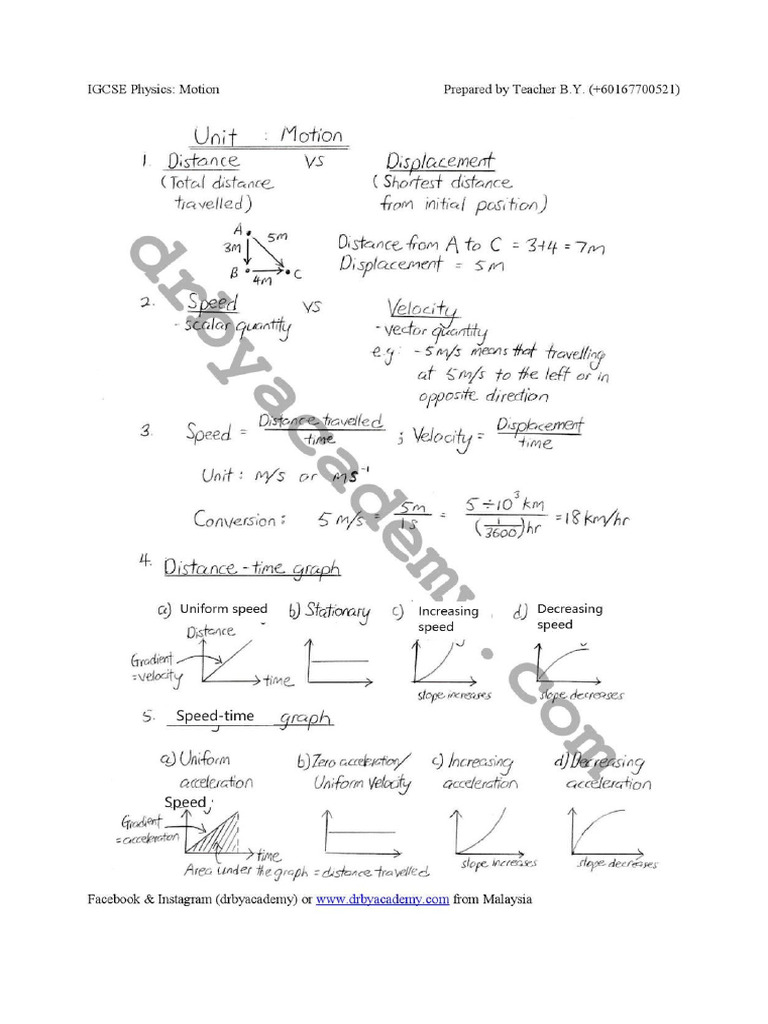 IGCSE Physics: Motion Prepared by Teacher B.Y. (+60167700521)
Unit : Motion
1. Distance vs Displacement
(Total distance travelled) (Shortest distance from initial position)
A
3m 5m
B 4m C
Distance from A to C = 3+4 = 7m
Displacement = 5m
2. Speed vs Velocity
- scalar quantity - vector quantity
e.g: -5m/s means that travelling
at 5m/s to the left or in
opposite direction
3. Speed = Distance travelled / time ; Velocity = Displacement / time
Unit: m/s or ms⁻¹
Conversion: 5 m/s = 5m / 1s = 5 ÷ 10³ km / (1/3600) hr = 18 km/hr
4. Distance-time graph
a) Uniform speed b) Stationary c) Increasing speed d) Decreasing speed
Distance
Gradient = velocity
time
slope increases
slope decreases
5. Speed-time graph
a) Uniform acceleration b) Zero acceleration/ Uniform Velocity c) Increasing acceleration d) Decreasing acceleration
Speed
Gradient = acceleration
time
slope increases
slope decreases
Area under the graph = distance travelled
Facebook & Instagram (drbyacademy) or www.drbyacademy.com from Malaysia
drbyacademy.com